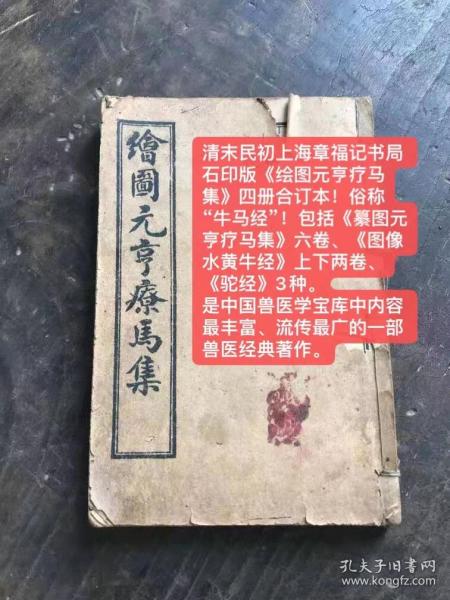 繪圖元亨療馬集
清末民初上海章福记书局
石印版《绘图元亨疗马
集》四册合订本！俗称
“牛马经”！包括《纂图元
亨疗马集》六卷、《图像
水黄牛经》上下两卷、
《驼经》3种。
是中国兽医学宝库中内容
最丰富、流传最广的一部
兽医经典著作。
孔夫子旧书网
www.kongfz.com